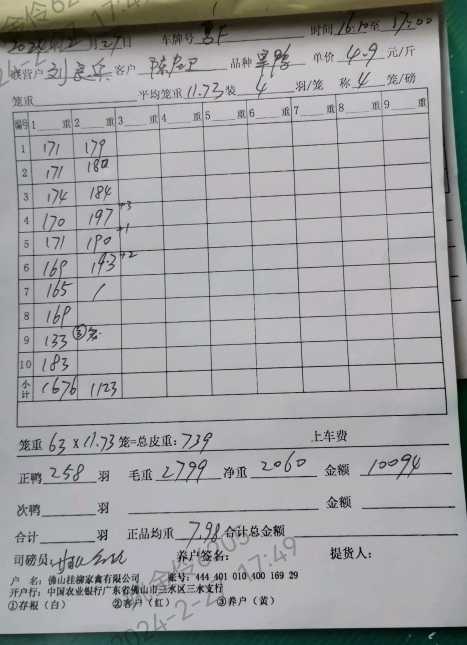 2024年2月27日 车牌号 时间 16:10至17:00
联营户 刘良兵 客户 陈启卫 品种 单价 4.9 元/斤
笼重 平均笼重 11.73 装 4 羽/笼 称 4 笼/磅
编号 1 重 2 重 3 重 4 重 5 重 6 重 7 重 8 重 9 重
1 171 179
2 171 180
3 174 184
4 170 197 +3
5 171 190 +1
6 169 193 +2
7 165 /
8 169
9 133 ③笼
10 183
小计 1676 1123
笼重 63 x 11.73 笼=总皮重: 739 上车费
正鸭 258 羽 毛重 2799 净重 2060 金额 10094
次鸭 羽 金额
合计 羽 正品均重 7.98 合计总金额
司磅员: 养户签名: 提货人:
户 名: 佛山桂柳家禽有限公司 账号: 444 401 010 400 169 29
开户行: 中国农业银行广东省佛山市三水区三水支行
①存根（白） ②客户（红） ③养户（黄）
17:49